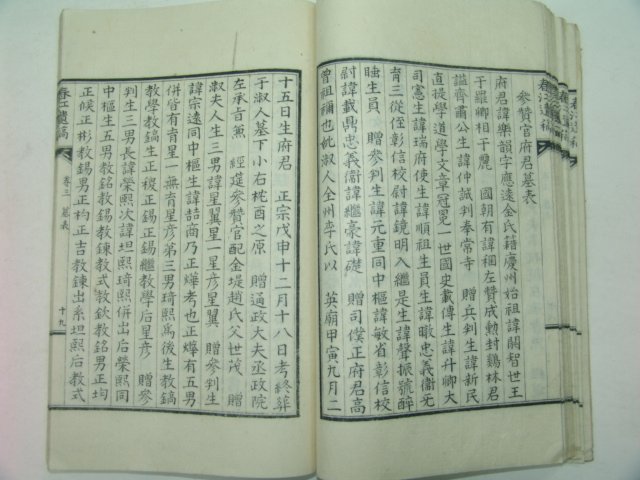 參贊官府君墓表
府君諱樂韻字應遠金氏籍慶州始祖諱閼智世王
于羅卿相于麗 國朝有諱稇左贊成勳封鷄林君
謚齊肅公生諱仲誠判奉常寺 贈兵判生諱新民
直提學道學文章冠冕一世國史載傳生諱丹卿大
司憲生諱瑞府使生諱順祖生員生諱暾忠義衛无
育三從侄彰信校尉諱鏡明入繼是生諱聲振號醉
睡生員 贈參判生諱元重同中樞諱敏省彰信校
尉諱載鼎忠義衛諱繼豪諱礎 贈司僕正府君高
曾祖禰也妣淑人全州李氏以 英廟甲寅九月二
十五日生府君 正宗戊申十二月十八日考終葬
于淑人墓下小右枕酉之原 贈通政大夫丞政院
左承旨兼 經筵參贊官配金堤趙氏父世茂 贈
淑夫人生三男諱星翼星一星彦星翼 贈參判生
諱宗遠同中樞生諱喆商乃正燁考也正燁有五男
併皆有肯星一無育星彦第三男琦熙爲後生教鎬
教學教鎬生正稷正錫正錫繼教學后星彦 贈參
判生三男長諱榮熙次諱坦熙琦熙併出后榮熙同
中樞生五男教銘教錫教鍊教式教欽教銘男正均
正候正彬教錫男正杓正吉教鍊出系坦熙后教式
春江遺稿 卷三 墓表 十九
春江遺稿